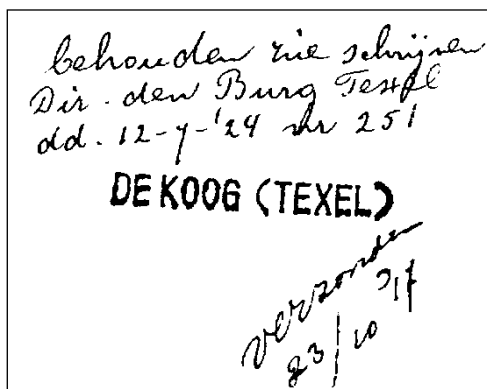 behouden zie schrijven
Dir. den Burg Texel
dd. 12-7-'24 nr 251
DE KOOG (TEXEL)
verzonden
23/10 '17